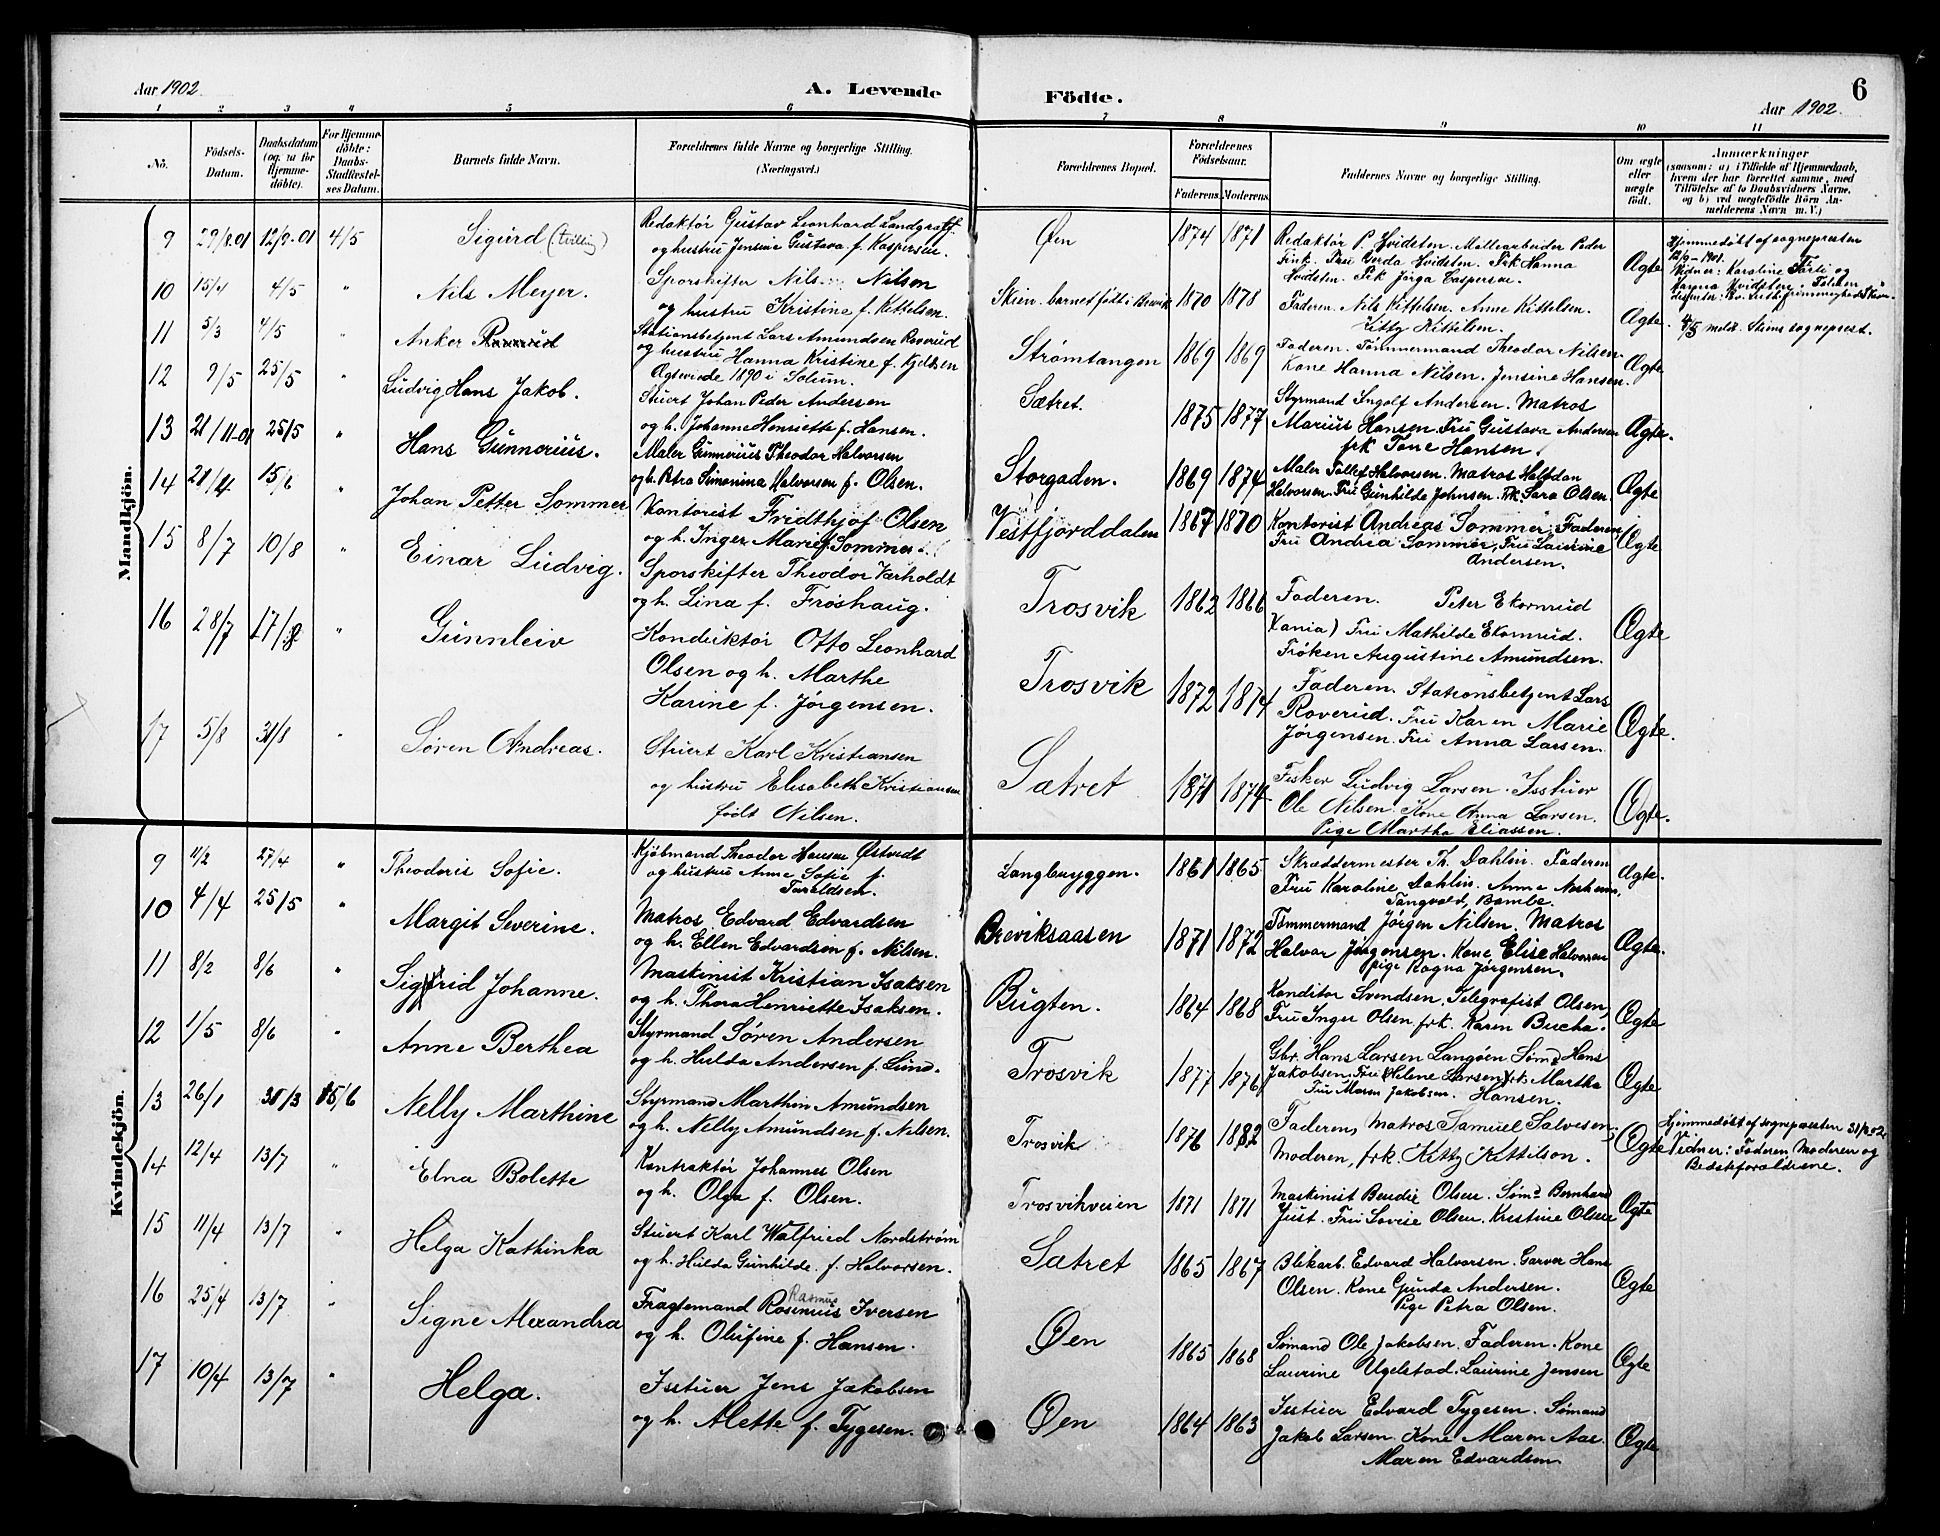 Aar 1902. A. Levende Födte. Aar 1902. 6
1 2 3 4 5 6 7 8 9 10 11
No. Födsels-Datum. Daabsdatum (og, ra för Hjemmedöbte). For Hjemmedöbte: Daabs-Stadfæstelses Datum. Barnets fulde Navn. Forældrenes fulde Navne og borgerlige Stilling. (Næringsvei.) Forældrenes Bopæl. Forældrenes Födselsaar. Faderens. Moderens. Faddernes Navne og borgerlige Stilling. Om ægte eller uægte födt. Anmærkninger
(saasom: a) i Tilfælde af Hjemmedaab, hvem der har forrettet samme, med Tilföielse af to Daabsvidners Navne, og b) ved uægtefödte Börn Anmelderens Navn m. V.)
Mandkjön.
9 29/8.01 12/9-01 4/5 Sigurd (tvilling) Redaktør Gustav Leonhard Landgraff
og hustru Jensine Gustava f. Kaspersen. Øen 1874 1871 Redaktør P. Hvidsten. Møllearbeider Peder
Fink. Fru Gerda Hvidsten. Frk Hanna
Hvidsten. Frk Jørga Caspersen. Ægte Hjemmedøbt af sognepresten
12/9-1901.
10 15/4 4/5 " Nils Meyer. Sporskifter Nils Nilson
og hustru Kristine f. Kettelsen. Skien. barnet født i Brevik 1870 1878 Faderen. Nils Kittelsen. Anne Kittelsen.
Kitty Kittelsen. Ægte. 4/5 meld. Skiens sogneprest.
11 5/3 4/5 " Anker Roverud Stationsbetjent Lars Amundsen Roverud
og hustru Hanna Kristine f. Kjeldsen
Ægteviede 1890 i Solum. Strømtangen 1869 1869 Faderen. Tømmermand Theodor Nilsen.
Kone Hanna Nilsen. Jensine Hansen. Ægte
12 9/5 25/5 " Ludvig Hans Jakob. Stuert Johan Peder Andersen
og h. Johanne Henriette f. Hansen. Sætret. 1875 1877 Styrmand Ingolf Andersen. Matros
Marius Hansen. Fru Gustava Andersen
frk Tone Hansen. Ægte.
13 21/11-01 25/5 " Hans Gunnerius. Maler Gunnerius Theodor Halvorsen
og h. Petra Simonina Halvorsen f. Olsen. Storgaden. 1869 1874 Maler Tollef Halvorsen. Matros Halfdan
Halvorsen. Fru Gunhilde Johnsen. Frk. Sara Olsen. Ægte
14 21/4 15/6 " Johan Petter Sommer Kontorist Fridthjof Olsen
og h. Inger Marie f. Sommer. Vestfjorddalen 1867 1870 Kontorist Andreas Sommer. Faderen
Fru Andrea Sommer, Fru Laurine
Andersen. Ægte
15 8/7 10/8 " Einar Ludvig. Sporskifter Theodor Værholdt
og h. Lina f. Frøshaug. Trosvik 1862 1866 Faderen. Peter Ekornrud
Fru Mathilde Ekornrud.
Frøken Augustine Amundsen. Ægte
16 28/7 17/8 " Gunnleiv Konduktør Otto Leonhard
Olsen og h. Marthe
Karine f. Jørgensen. Trosvik 1872 1874 Faderen. Stationsbetjent Lars
Roverud. Fru Karen Marie
Jørgensen. Fru Anna Larsen. Ægte.
17 5/8 31/8 " Søren Andreas. Stuert Karl Kristiansen
og hustru Elisabeth Kristiansen
født Nilsen. Sætret 1871 1874 Fisker Ludvig Larsen. Isstuer
Ole Nilsen. Kone Anna Larsen.
Pige Martha Eliassen. Ægte.
Kvindekjön.
9 11/2 27/4 " Theodoris Sofie. Kjøbmand Theodor Hansen Østvedt
og hustru Anne Sofie f.
Taraldsen. Langbryggen. 1861 1865 Skræddermester Th. Dahlin. Faderen
Fru Karoline Dahlin. Anne
Tangvald, Bamble. Ægte.
10 4/4 25/5 " Margit Severine. Matros Edvard Edvardsen
og h. Ellen Edvardsen f. Nilsen. Breviksaasen 1871 1872 Tømmermand Jørgen Nilsen. Matros
Halvar Jørgensen. Kone Elise Halvorsen
pige Ragna Jørgensen. Ægte.
11 8/2 8/6 " Sigfrid Johanne. Maskinist Kristian Isaksen
og h. Thora Henriette Isaksen. Bugten. 1864 1868 Konditor Svendsen. Telegrafist Olsen,
Fru Inger Olsen, frk. Karen Bucha. Ægte
12 1/5 8/6 " Anne Berthea Styrmand Søren Andersen
og h. Hulda Andersen f. Lund. Trosvik 1877 1876 Gbr. Hans Larsen Langøen. Sømd Hans
Jakobsen. Fru Helene Larsen, frk Martha
Fru Maren Jakobsen. Hansen. Ægte
13 26/1 31/3 15/6 Nelly Marthine Styrmand Marthin Amundsen
og h. Nelly Amundsen f. Nilsen. Trosvik 1876 1882 Faderen, Matros Samuel Salvesen.
Moderen, frk. Kitty Kittilson. Ægte Hjemmedøbt af sognepresten
Vidner: Faderen, Moderen og
Bedsteforældrene.
14 12/4 13/7 " Elna Bolette Kontraktør Johannes Olsen
og h. Olga f. Olsen. Trosvikveien 1871 1871 Maskinist Bendie Olsen. Sømd Bernhard
Just. Fru Lovise Olsen. Kristine Olsen Ægte
15 11/4 13/7 " Helga Kathinka Stuert Karl Walfried Nordstrøm
og h. Hulda Gunhilde f. Halvorsen. Sætret 1865 1867 Blikarb. Edvard Halvorsen. Garver Hans
Olsen. Kone Gunda Andersen.
Pige Petra Olsen. Ægte
16 25/4 13/7 " Signe Alexandra Fragtemand Rasmus Rosenius Iversen
og h. Olufine f. Hansen. Øen 1865 1868 Sømand Ole Jakobsen. Faderen. Kone
Laurine Ugelstad. Laurine Jensen Ægte
17 10/4 13/7 " Helga. Isstuer Jens Jakobsen
og h. Alette f. Tygesen. Øen 1864 1863 Isstuer Edvard Tygesen. Sømand
Jakob Larsen. Kone Maren Aas.
Maren Edvardsen. Ægte